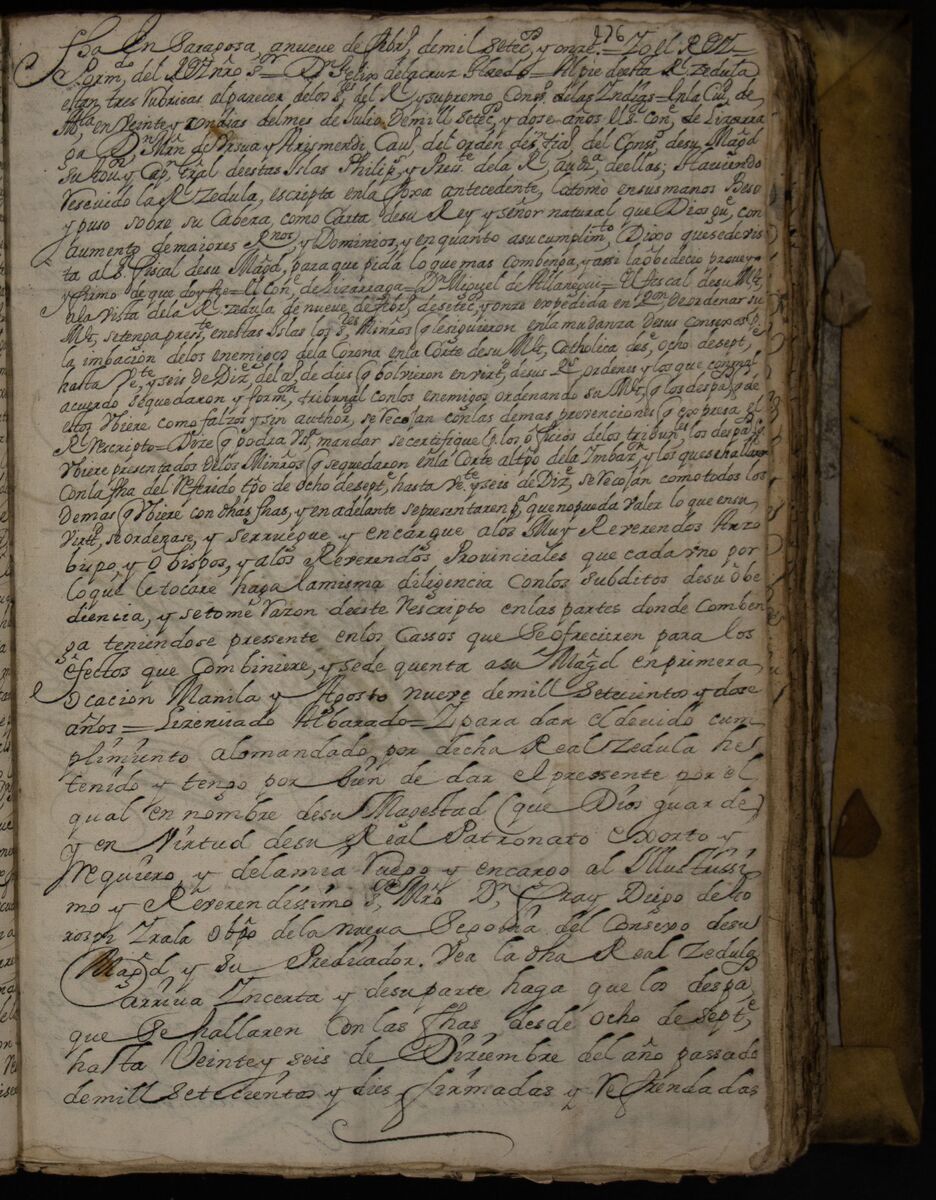 176
fha En Saragosa, a nueve de Abrl, demil Setecs, y onze = Yo el REY =
Pormdo, del REY nro Sr = Dn Felix dela cruz = Al pie desta Rl Zedula
estan tres rubricas alparecer delos Ss del Rl y supremo Conso, delas Yndias = En la Ciud, de
Mla en Veinte y un dias del mes de Julio Demill Setecs, y dose años El Sr Con, de Lizarra
ga Dn Mrn de Vrsua y Arismendi, Cauo, del orden de Santiago, del Conso, desu Magd
Su Gour, y Capn Gral de estas Islas Philips, y Preste dela Rl, audia, deellas; Hauiendo
Resceuido la Rl Zedula, escripta enla foxa antecedente, la tomò ensus manos Beso
y puso sobre su Cabeza, como Carta desu Rey y señor natural que Dios gue, con
aumento de maiores Rnos, y Dominios, y en quanto asu cumplimto, Dixo que se de vis
ta al Sr Fiscal desu Magd, para que pida lo que mas combenga, y assi lo òbedecio proueyò
y firmo de que doy fee = El Con, de Lizarraga = Dn Miguel de Allanegui = El fiscal desu Mgt,
a la vista dela Rl Zedula de nueve de Abrl, de setecs, y onze expedida en rn De ordenar su
Mgt, se tenga preste, en estas Islas los Ss, Minros (q le siguieron en la mudanza desus consexos p,
la imbacion delos enemigos dela Corona en la Corte desu Mgt, Catholica desde, ocho de septe,
hasta Vte, y seis de Dize, del aº, de dies (q bolvieron en virtd, desus Rs ordenes y los que,
acuerdo se quedaron y formon, tribunal con los enemigos ordenando su Mgt, (q los despas, q de
estos vbiere como falzos y sin authord, se recojan con las demas prevenciones (q expresa el
Rl Rescripto = Dize (q podra VS mandar se certifique (p. los oficios delos tribunes, los despas, q
Vbiere presentados delos Minros (q se quedaron en la Corte al tpo dela Imbaon, y los que se hallaren
Con la fha del Referido tpo de ocho de septe, hasta Vte, y seis de Dize, se recojan como todos los
Demas (q Vbiere con dhas fhas, y en adelante se presentaren p, que no pueda valer lo que en su
Virtd, se ordenase, y se rruegue y encargue alos Muy Reverendos Arzo
bispo, y Obispos, y alos Reverendos Provinciales que cada vno por
lo que le tocare haga la misma diligencia con los subditos desu òbe
diencia, y se tome razon deeste Rescripto en las partes donde Comben
ga teniendose pressente en los Cassos que se ofrecieren para los
efectos que Combiniere, y se de quenta a su Magd en primera
Ocacion Manila y Agosto nueve demill Setecientos y dose
años = Lizenciado Albarado = Y para dar el devido cum
plimiento alo mandado por dicha Real Zedula he
tenido y tengo por bien de dar el pressente por el
qual en nombre desu Magestad (que Dios guarde)
y en Virtud desu Real Patronato exorto y
rrequiero, y dela mia Ruego y encargo al Illustrissi
mo y Reverendissimo Sr, Mro Dn, Fray Diego de Go
rospe Yrala Obpo dela nueva Segovia del Consexo desu
Magd, y Su Predicador. Vea la dha Real Zedula
arriva Yncerta y desu parte haga que los despas,
que se hallaren Con las fhas, desde Ocho de Septe,
hasta Veinte y seis de Diziembre del año passado
demill Setecientos y dies firmadas y Refrendadas